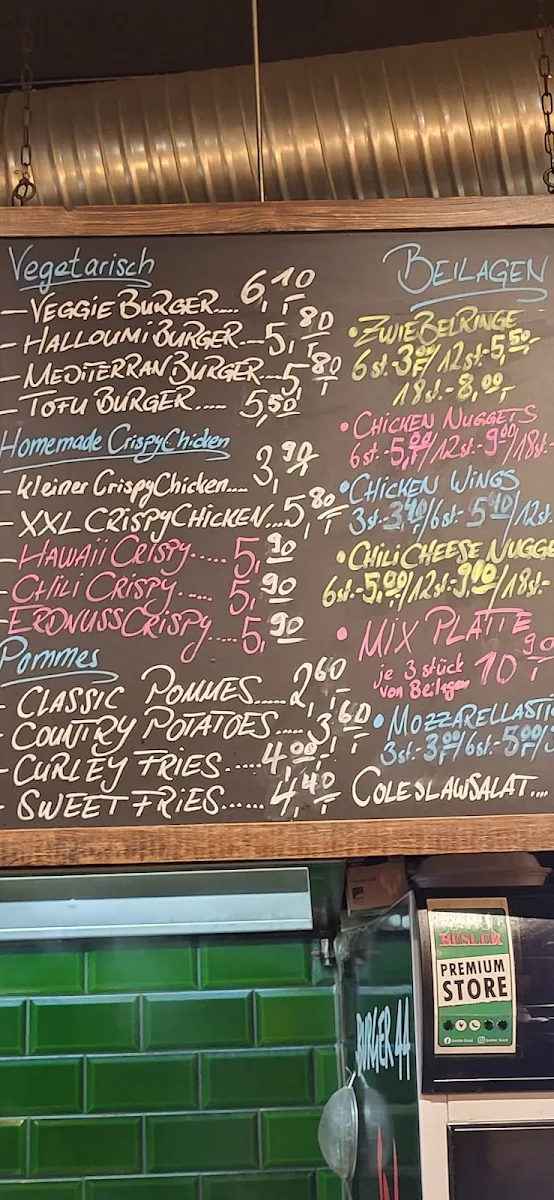 Vegetarisch
- VEGGIE BURGER.... 6,10
- HALLOUMI BURGER...5,80
- MEDITERRAN BURGER...5,80
- TOFU BURGER..... 5,50
Homemade CrispyChicken
- kleiner CrispyChicken.... 3,90
- XXL CRISPYCHICKEN...5,80
- HAWAII CRISPY..... 5,90
- CHILI CRISPY..... 5,90
- ERDNUSSCRISPY....5,90
Pommes
- CLASSIC POMMES.....2,60
- COUNTRY POTATOES....3,60
- CURLEY FRIES.....4,00
- SWEET FRIES..... 4,40
BEILAGEN
•ZWIEBELRINGE
6 st.-3,00/12 st.-5,50,-
18 st.-8,00,-
•CHICKEN NUGGETS
6 st.-5,00/12 st.-9,00/18 st.-
•CHICKEN WINGS
3 st.-3,40/6 st.-5,40/12 st.
•CHILI CHEESE NUGGE
6 st.-5,00/12 st.-9,00/18 st.-
• MIX PLATTE
je 3 stück 10,90
von Beilagen
•MOZZARELLASTI
3 st.-3,00/6 st.-5,00/
COLESLAWSALAT....
BURGER 44
PREMIUM
STORE